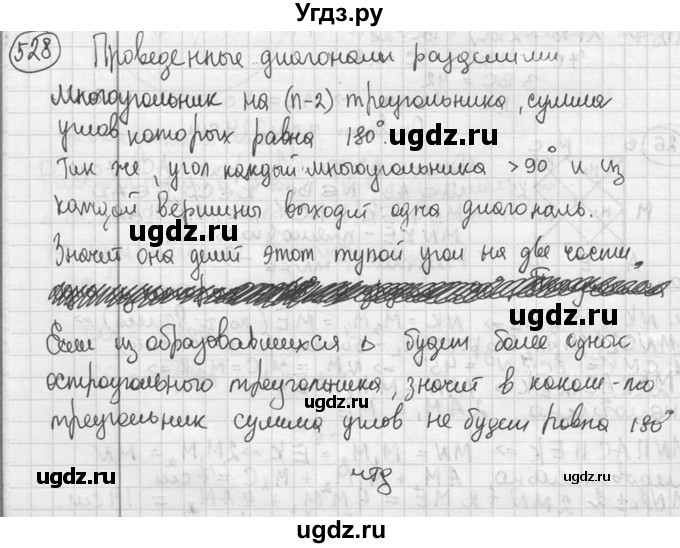 Угдз.ру
528 Проведенные диагонали разделили
многоугольник на (n-2) треугольника, сумма
углов которых равна 180°.
Так же, угол каждый многоугольника > 90° и из
каждой вершины выходит одна диагональ.
Значит она делит этот тупой угол на две части.
Если из образовавшихся △ будет более одного
остроугольного треугольника, значит в каком-то
треугольник сумма углов не будет равна 180°
чтд
ugdz.ru
ugdz.ru
ugdz.ru
ugdz.ru
ugdz.ru
ugdz.ru
ugdz.ru
ugdz.ru